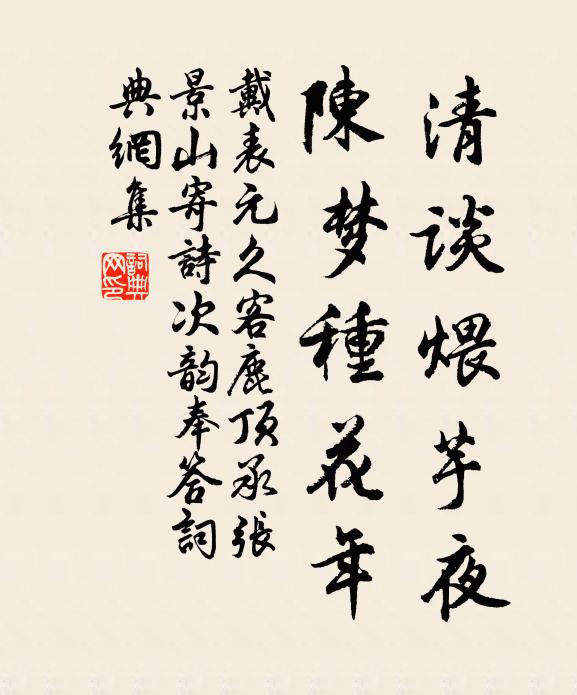 清談煨芋夜
陳梦種花年
戴表元久客鹿頂承張
景山寄詩次韵奉答詞
典網集
詞典網印